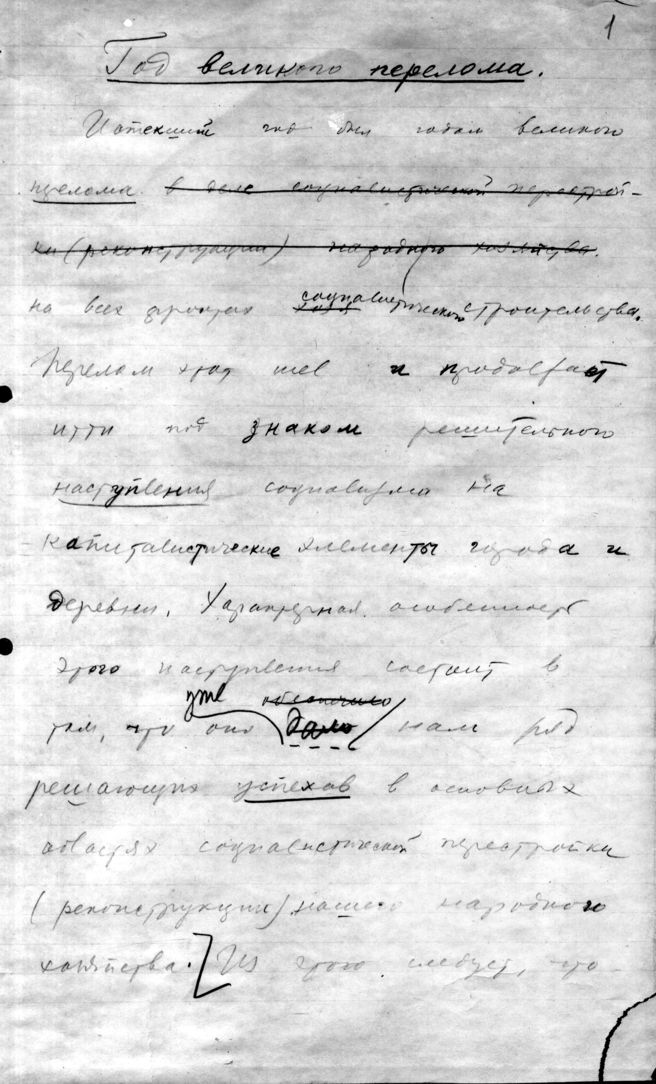 1
Год великого перелома.
Истекший год был годом великого
перелома в деле социалистической перестрой-
ки (реконструкции) народного хозяйства.
на всех фронтах социалистического строительства.
Перелом этот шел и продолжает
итти под знаком решительного
наступления социализма на
капиталистические элементы города и
деревни. Характерная особенность
этого наступления состоит в
уже обеспечило
том, что оно дало нам ряд
решающих успехов в основных
областях социалистической перестройки
(реконструкции) нашего народного
хозяйства. Из этого следует, что